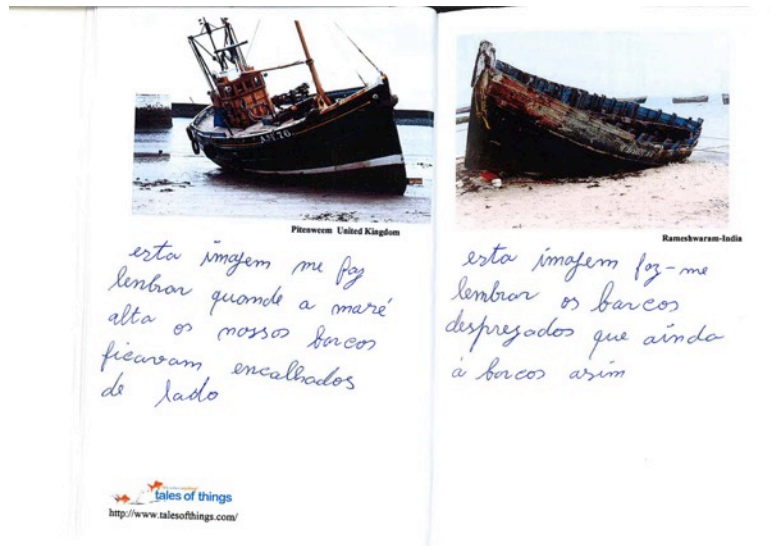 Pitenweem United Kingdom
esta imagem me faz
lenbrar quande a maré
alta os nossos barcos
ficavam encalhados
de lado
tales of things
http://www.talesofthings.com/
Rameshwaram-India
esta imagem faz-me
lembrar os barcos
desprezados que ainda
á barcos asim